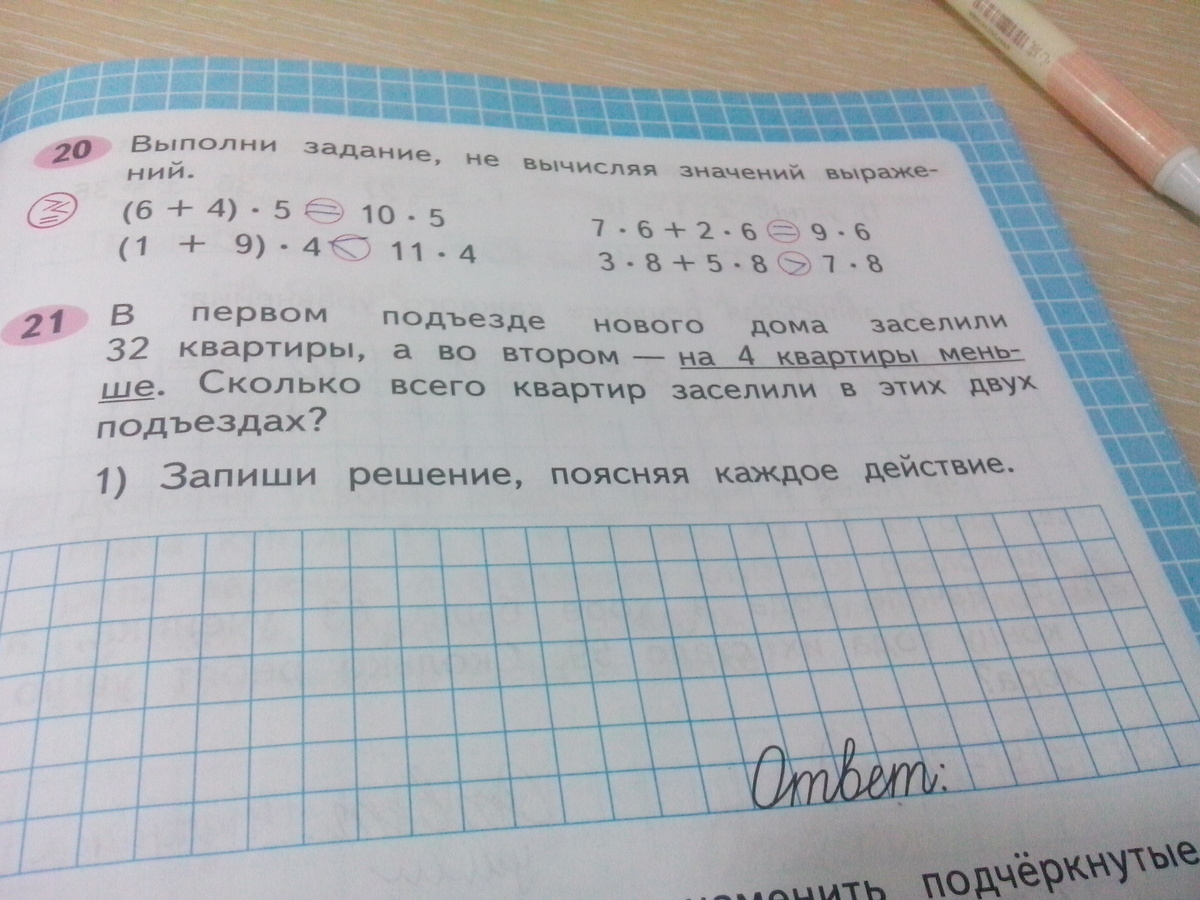 20 Выполни задание, не вычисляя значений выраже-
ний.
(6 + 4) · 5 = 10 · 5
(1 + 9) · 4 < 11 · 4
7 · 6 + 2 · 6 = 9 · 6
3 · 8 + 5 · 8 > 7 · 8
21 В первом подъезде нового дома заселили
32 квартиры, а во втором — на 4 квартиры мень-
ше. Сколько всего квартир заселили в этих двух
подъездах?
1) Запиши решение, поясняя каждое действие.
Ответ:
подчёркнутые